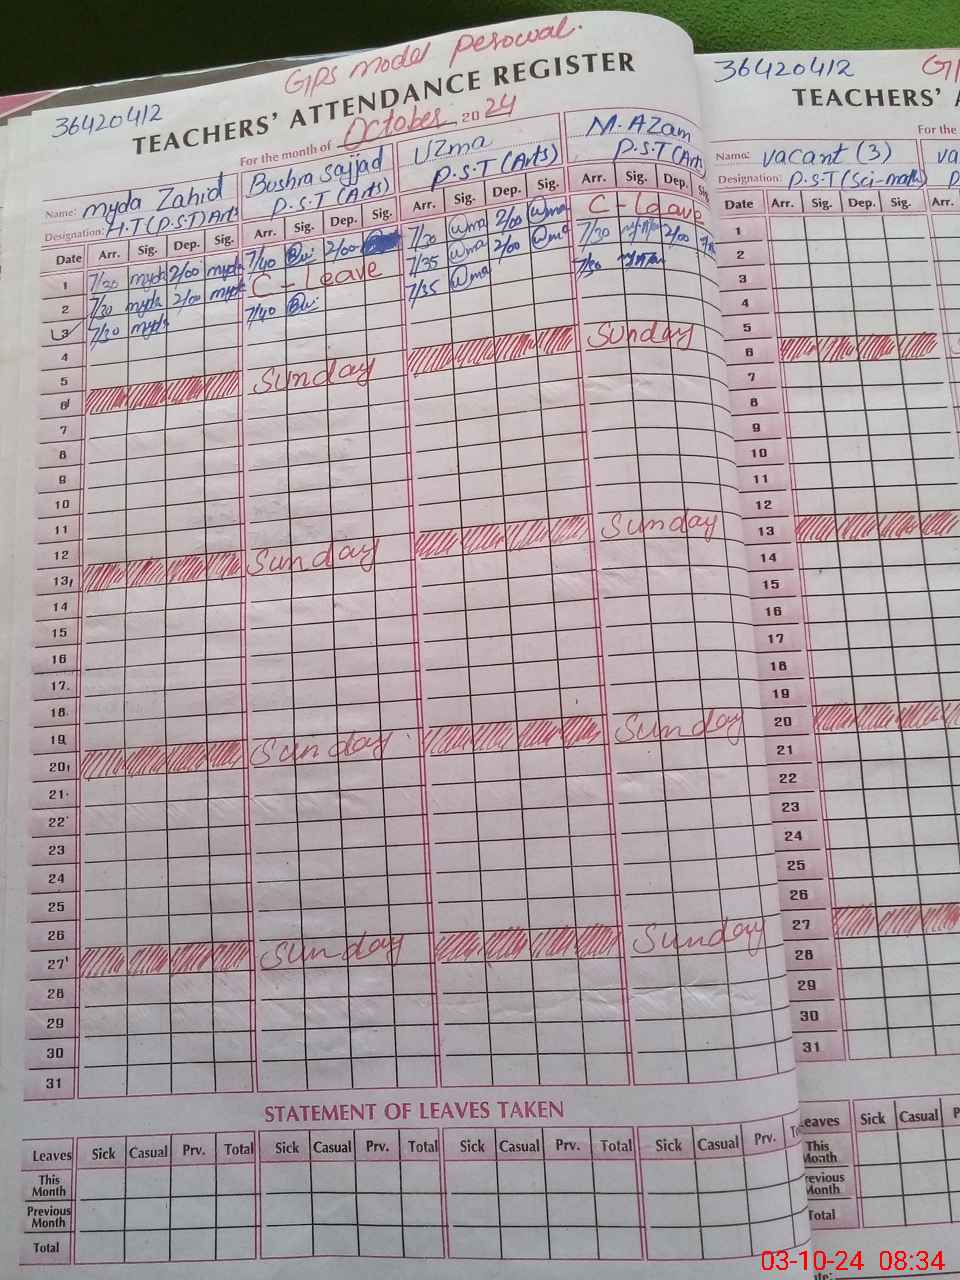 GPS model perowal.
36420412
TEACHERS' ATTENDANCE REGISTER
For the month of October 20 24
Name: myda Zahid Bushra Sajjad Uzma M. Azam
Designation: H.T (P.S.T) Arts P.S.T (Arts) P.S.T (Arts) P.S.T (Arts)
Date Arr. Sig. Dep. Sig. Arr. Sig. Dep. Sig. Arr. Sig. Dep. Sig. Arr. Sig. Dep. Sig.
1 7/30 myda 2/00 myda 7/40 2/00 7/30 Uma 2/00 Uma C - Leave
2 7/30 myda 2/00 myda C - Leave 7/35 Uma 2/00 Uma 7/30 2/00
3 7/30 myda 7/40 7/35 Uma 7/30
4
5
6 Sunday Sunday
7
8
9
10
11
12
13 Sunday Sunday
14
15
16
17
18
19
20 Sunday Sunday
21
22
23
24
25
26
27 Sunday Sunday
28
29
30
31
STATEMENT OF LEAVES TAKEN
Leaves Sick Casual Prv. Total Sick Casual Prv. Total Sick Casual Prv. Total Sick Casual Prv.
This Month
Previous Month
Total
36420412
TEACHERS'
For the
Name: vacant (3)
Designation: P.S.T (Sci-math)
Date Arr. Sig. Dep. Sig. Arr.
1
2
3
4
5
6
7
8
9
10
11
12
13
14
15
16
17
18
19
20
21
22
23
24
25
26
27
28
29
30
31
Leaves Sick Casual
This Month
Previous Month
Total
03-10-24 08:34